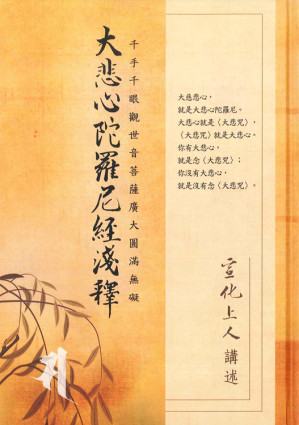 千手千眼觀世音菩薩廣大圓滿無礙
大悲心陀羅尼經淺釋
大慈悲心,
就是大悲心陀羅尼。
大悲心就是〈大悲咒〉,
〈大悲咒〉就是大悲心。
你有大悲心,
就是念〈大悲咒〉;
你沒有大悲心,
就是沒有念〈大悲咒〉。
宣化上人 講述